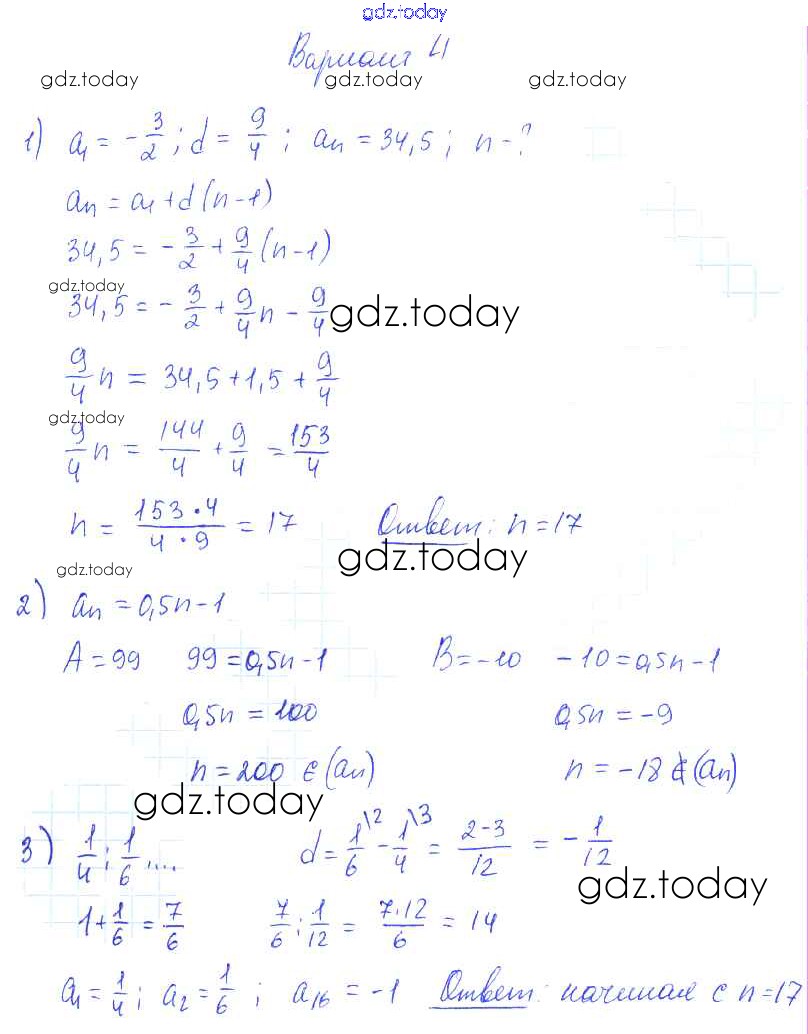 gdz.today
Вариант 4
gdz.today gdz.today gdz.today
1) a₁ = -3/2 ; d = 9/4 ; aₙ = 34,5 ; n - ?
aₙ = a₁ + d(n-1)
34,5 = -3/2 + 9/4 (n-1)
gdz.today
34,5 = -3/2 + 9/4 n - 9/4
gdz.today
9/4 n = 34,5 + 1,5 + 9/4
gdz.today
9/4 n = 144/4 + 9/4 = 153/4
n = 153·4/4·9 = 17 Ответ: n = 17
gdz.today
gdz.today
2) aₙ = 0,5n - 1
A = 99 99 = 0,5n - 1 B = -10 -10 = 0,5n - 1
0,5n = 100 0,5n = -9
n = 200 ∈ (aₙ) n = -18 ∉ (aₙ)
gdz.today
3) 1/4 ; 1/6 .... d = 1/6 \2 - 1/4 \3 = 2-3/12 = -1/12
gdz.today
1 + 1/6 = 7/6 7/6 : 1/12 = 7·12/6 = 14
a₁ = 1/4 ; a₂ = 1/6 ; a₁₆ = -1 Ответ: начиная с n = 17